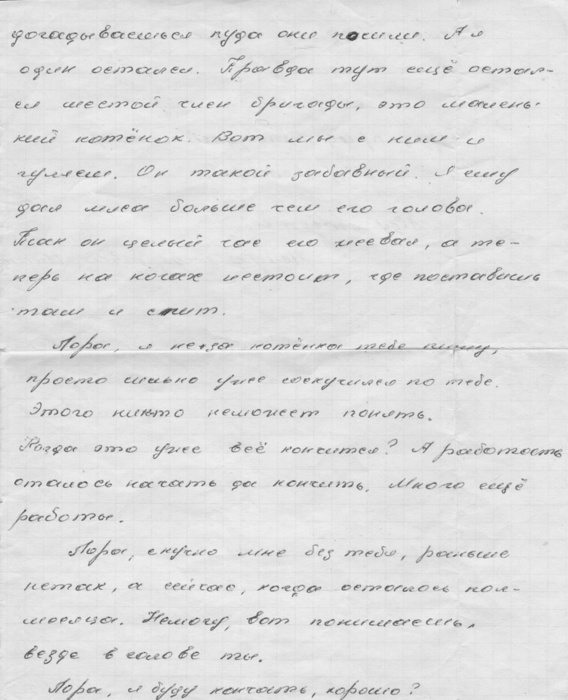 догадываешься куда они пошли. А я
один остался. Правда тут ещё остал-
ся шестой член бригады, это малень-
кий котёнок. Вот мы с ним и
гуляем. Он такой забавный. Я ему
дал мяса больше чем его голова.
Так он целый час его жевал, а те-
перь на ногах нестоит, где поставишь
там и спит.
Лора, я не из-за котёнка тебе пишу,
просто сильно уже соскучился по тебе.
Этого никто неможет понять.
Когда это уже всё кончится? А работы ос
талось начать да кончить. Много ещё
работы.
Лора, скучно мне без тебя, раньше
нетак, а сейчас, когда осталось пол-
месяца. Немогу, вот понимаешь,
везде в голове ты.
Лора, я буду кончать, хорошо?